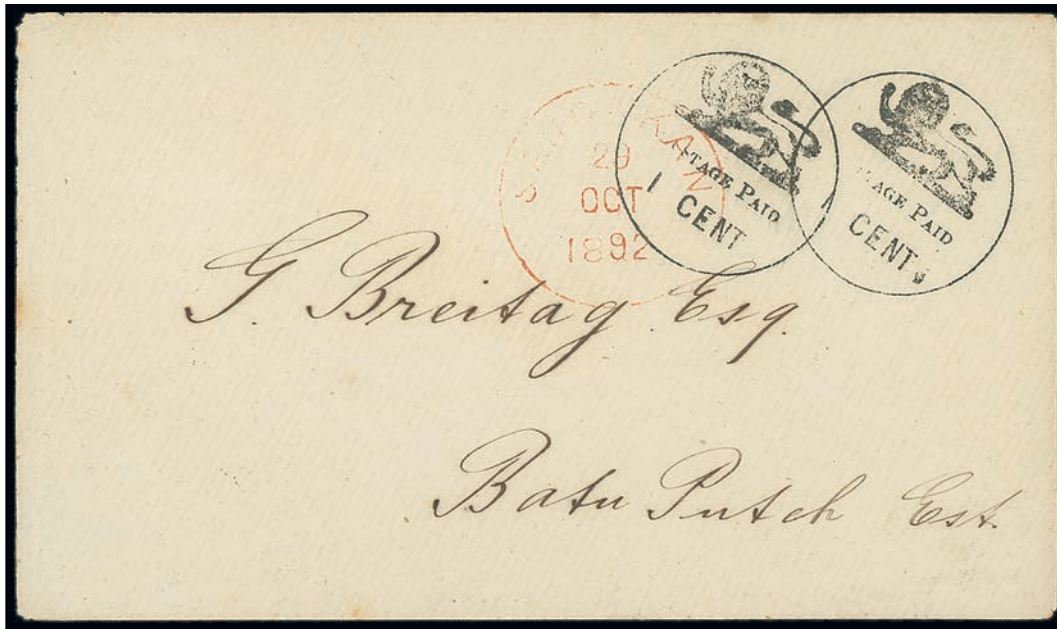 SANDAKAN
29
OCT
1892
POSTAGE PAID
1 CENT
PAID
1 CENT
G. Breitag Esq.
Batu Puteh Est.